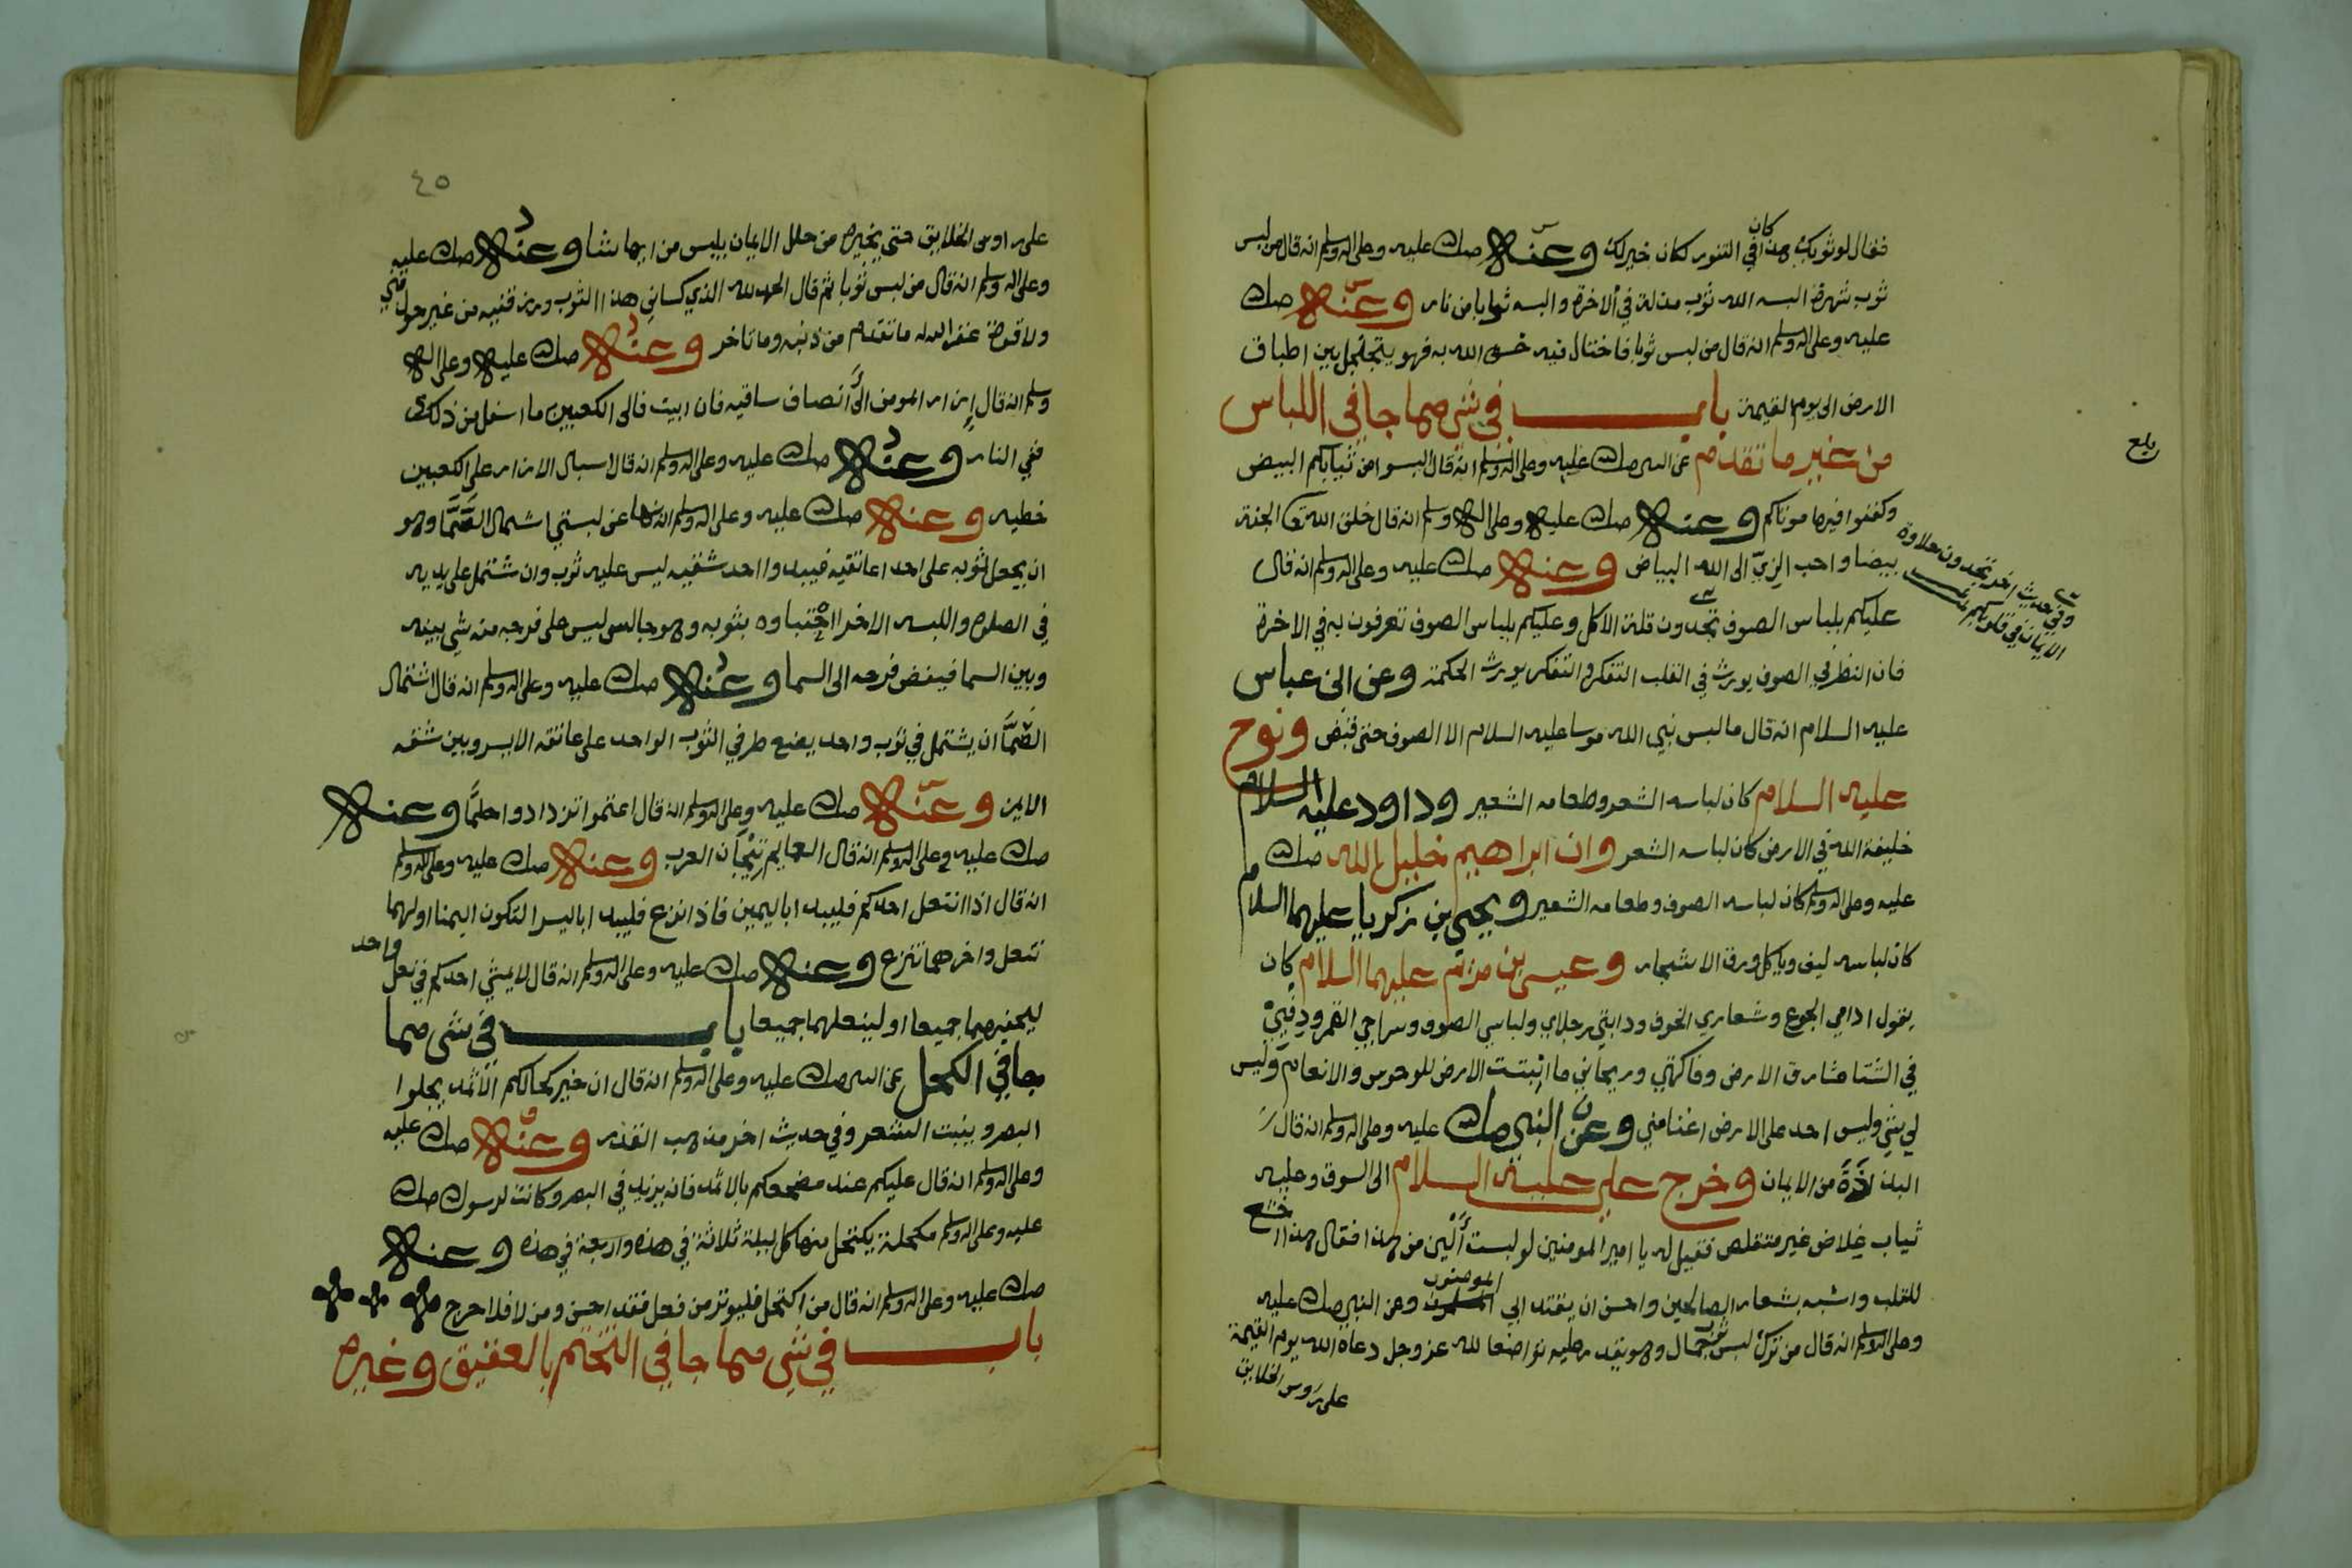 فقال لو ثوبك هذا كان في التنور لكان خير لك وعنه صلى الله عليه وعلى اله وسلم انه قال من لبس
ثوب شهرة البسه الله ثوب مذلة في الاخرة والبسه ثوابا من نار وعنه صلى الله
عليه وعلى اله وسلم انه قال من لبس ثوبا فاختال فيه خسف الله به فهو يتجلجل بين اطباق
الارض الى يوم القيمة باب في شي مما جا في اللباس
من غير ما تقدم عن النبي صلى الله عليه وعلى اله وسلم انه قال البسوا من ثيابكم البيض
وكفنوا فيها موتاكم وعنه صلى الله عليه وعلى اله وسلم انه قال خلق الله تعا الجنة
بيضا واحب الزي الى الله البياض وعنه صلى الله عليه وعلى اله وسلم انه قال
عليكم بلباس الصوف تجدون قلة الاكل وعليكم بلباس الصوف تعرفون به في الاخرة
وفي حديث اخر تجدون حلاوة
الايمان في قلوبكم
فان النظر في الصوف يورث في القلب التفكر والتفكر يورث الحكمة وعن ابن عباس
عليه السلام انه قال ما لبس نبي الله موسا عليه السلام الا الصوف حتى قبض ونوح
عليه السلام كان لباسه الشعر وطعامه الشعير وداود عليه السلام
خليفة الله في الارض كان لباسه الشعر وان ابراهيم خليل الله صلى الله
عليه وعلى اله وسلم كان لباسه الصوف وطعامه الشعير ويحيى بن زكريا عليهما السلام
كان لباسه ليف وياكل ورق الاشجار وعيسى بن مريم عليهما السلام كان
يقول ادامي الجوع وشعاري الخوف ودابتي رجلاي ولباسي الصوف وسراجي القمر ودفيي
في الشتا مشارق الارض وفاكهتي وريحاني ما انبتت الارض للوحوس والانعام وليس
لي شي وليس احد على الارض اغنا مني وعن النبي صلى الله عليه وعلى اله وسلم انه قال
البذاذة من الايمان وخرج علي عليه السلام الى السوق وعليه
ثياب غلاض غير متقلص فقيل له يا امير المومنين لو لبست ألين من هذا فقال هذا اخشع
للقلب واشبه بشعار الصالحين واحسن ان يقتدي المومنون وعن النبي صلى الله عليه
وعلى اله وسلم انه قال من ترك لبس ثوب جمال وهو يقدر عليه تواضعا لله عز وجل دعاه الله يوم القيمة
على روس الخلايق
بلغ
٤٥
على روس الخلايق حتى يخيره من حلل الايمان يلبس من ايها شا وعنه صلى الله عليه
وعلى اله وسلم انه قال من لبس ثوبا ثم قال الحمد لله الذي كساني هذا الثوب ورزقنيه من غير حول مني
ولا قوة غفر الله له ما تقدم من ذنبه وما تاخر وعنه صلى الله عليه وعلى اله
وسلم انه قال ازار المومن الى أنصاف ساقيه فان ابيت فالى الكعبين ما اسفل من ذلك
ففي النار وعنه صلى الله عليه وعلى اله وسلم انه قال اسبال الازار على الكعبين
خطيه وعنه صلى الله عليه وعلى اله وسلم انه نها عن لبستي اشمال الصمّا وهو
ان يجعل ثوبه على احد اعاتقيه فيبدوا احد شقيه ليس عليه ثوب وان شتمل على يديه
في الصلوة واللبسه الاخرا احتباوه بثوبه وهو جالس ليس على فرجه منه شي بينه
وبين السما فيفض فرجه الى السما وعنه صلى الله عليه وعلى اله وسلم انه قال اشتمال
الصّمّا ان يشتمل في ثوب واحد يضع طرفي الثوب الواحد على عاتقه الايسر وبين شقه
الايمن وعنه صلى الله عليه وعلى اله وسلم انه قال اعتموا تزدادوا حلمًا وعنه
صلى الله عليه وعلى اله وسلم انه قال العمايم تيجان العرب وعنه صلى الله عليه وعلى اله وسلم
انه قال اذا انتعل احدكم فليبدا باليمين فاذا نزع فليبدا باليسرا لتكون اليمنا اولهما
تنعل واخرهما تنزع وعنه صلى الله عليه وعلى اله وسلم انه قال لا يمشي احدكم في نعل واحد
ليحفيهما جميعا او لينعلهما جميعا باب في شي مما
جا في الكحل عن النبي صلى الله عليه وعلى اله وسلم انه قال ان خير كحالكم الاثمد يجلوا
البصر وينبت الشعر وفي حديث اخر مذهب القذر وعنه صلى الله عليه
وعلى اله وسلم انه قال عليكم عند مضجعكم بالاثمد فانه يزيد في البصر وكانت لرسول الله صلى الله
عليه وعلى اله وسلم مكحلة يكتحل منها كل ليلة ثلاثة في هذه واربعة في هذه وعنه
صلى الله عليه وعلى اله وسلم انه قال من اكتحل فليوتر من فعل فقد احسن ومن لا فلا حرج
باب في شي مما جا في التختم بالعقيق وغيره